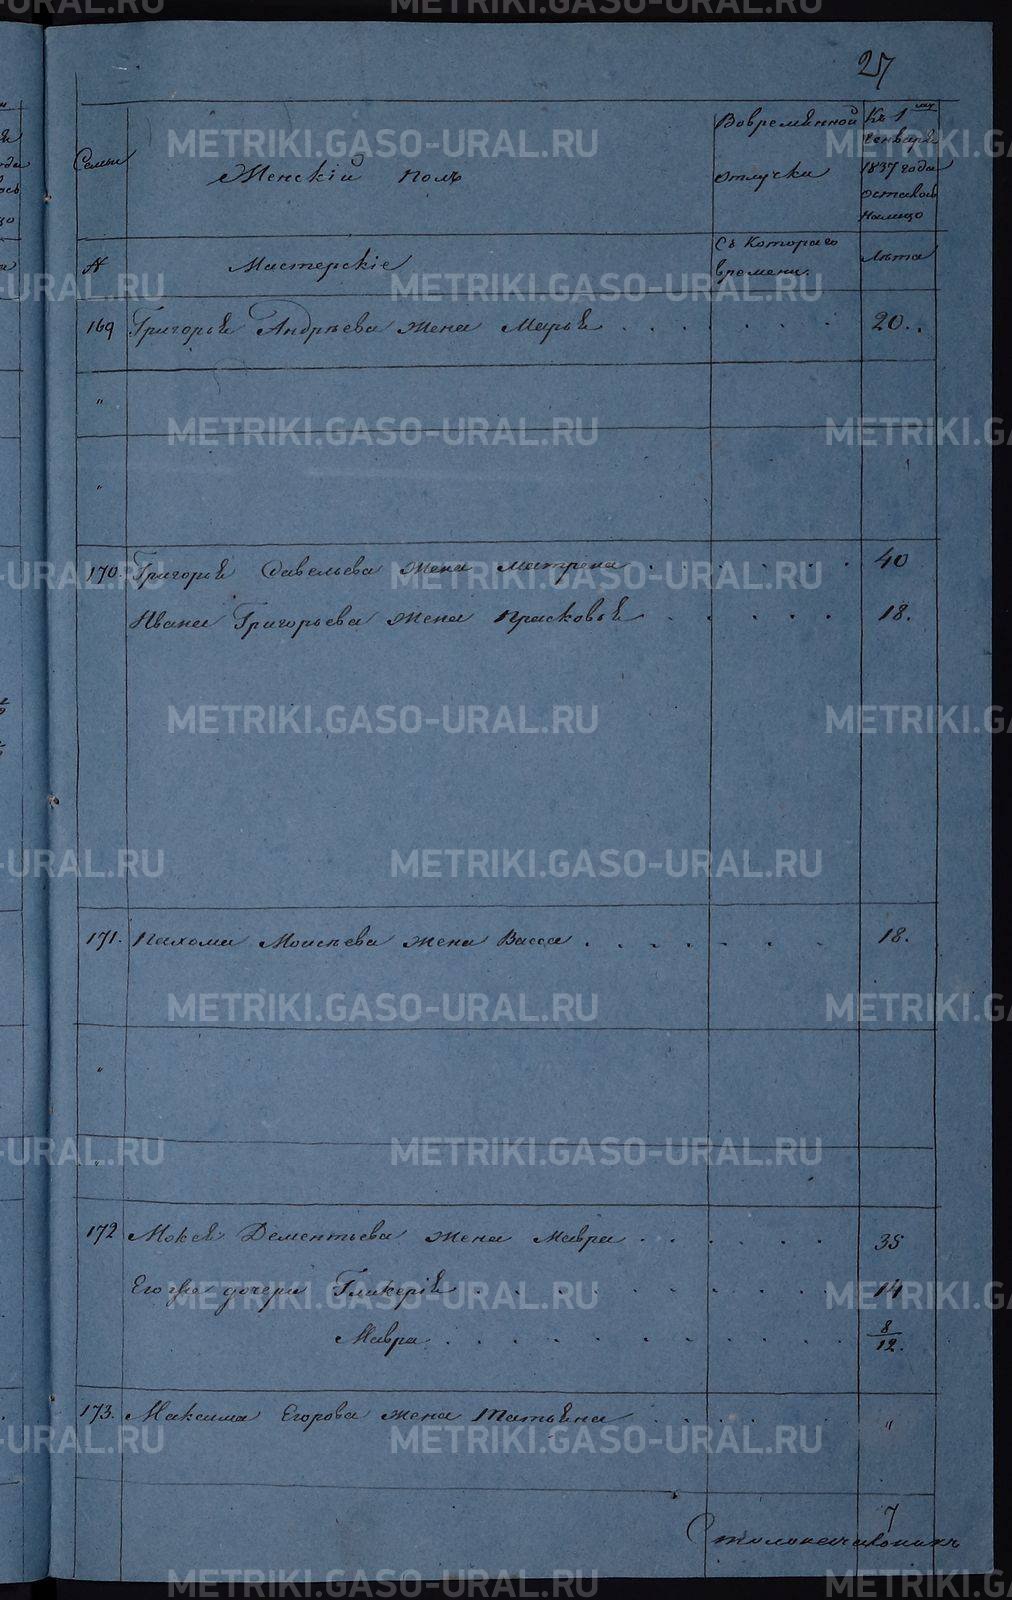 27
Семьи
Женскій полъ
Вовременной
отлучки
Къ 1му
генваря
1837 года
осталось
налицо
№
Мастерскіе
Съ котораго
времени.
Лѣта
169 Григорья Андрѣева жена Марья . . . . . . 20..
"
"
170. Григорья Савельева жена Матрена . . . . . . 40
Ивана Григорьева жена Прасковья . . . . . 18.
171. Пахома Моисѣева жена Васса . . . . . . . 18.
"
"
172 Мокея Дементьева жена Мавра . . . . . . 35
Его дочери Гликерія . . . . . . . . . . 14
Мавра . . . . . . . . . . . 8/12.
173. Максима Егорова жена Татьяна . . . . . "
7
METRIKI.GASO-URAL.RU